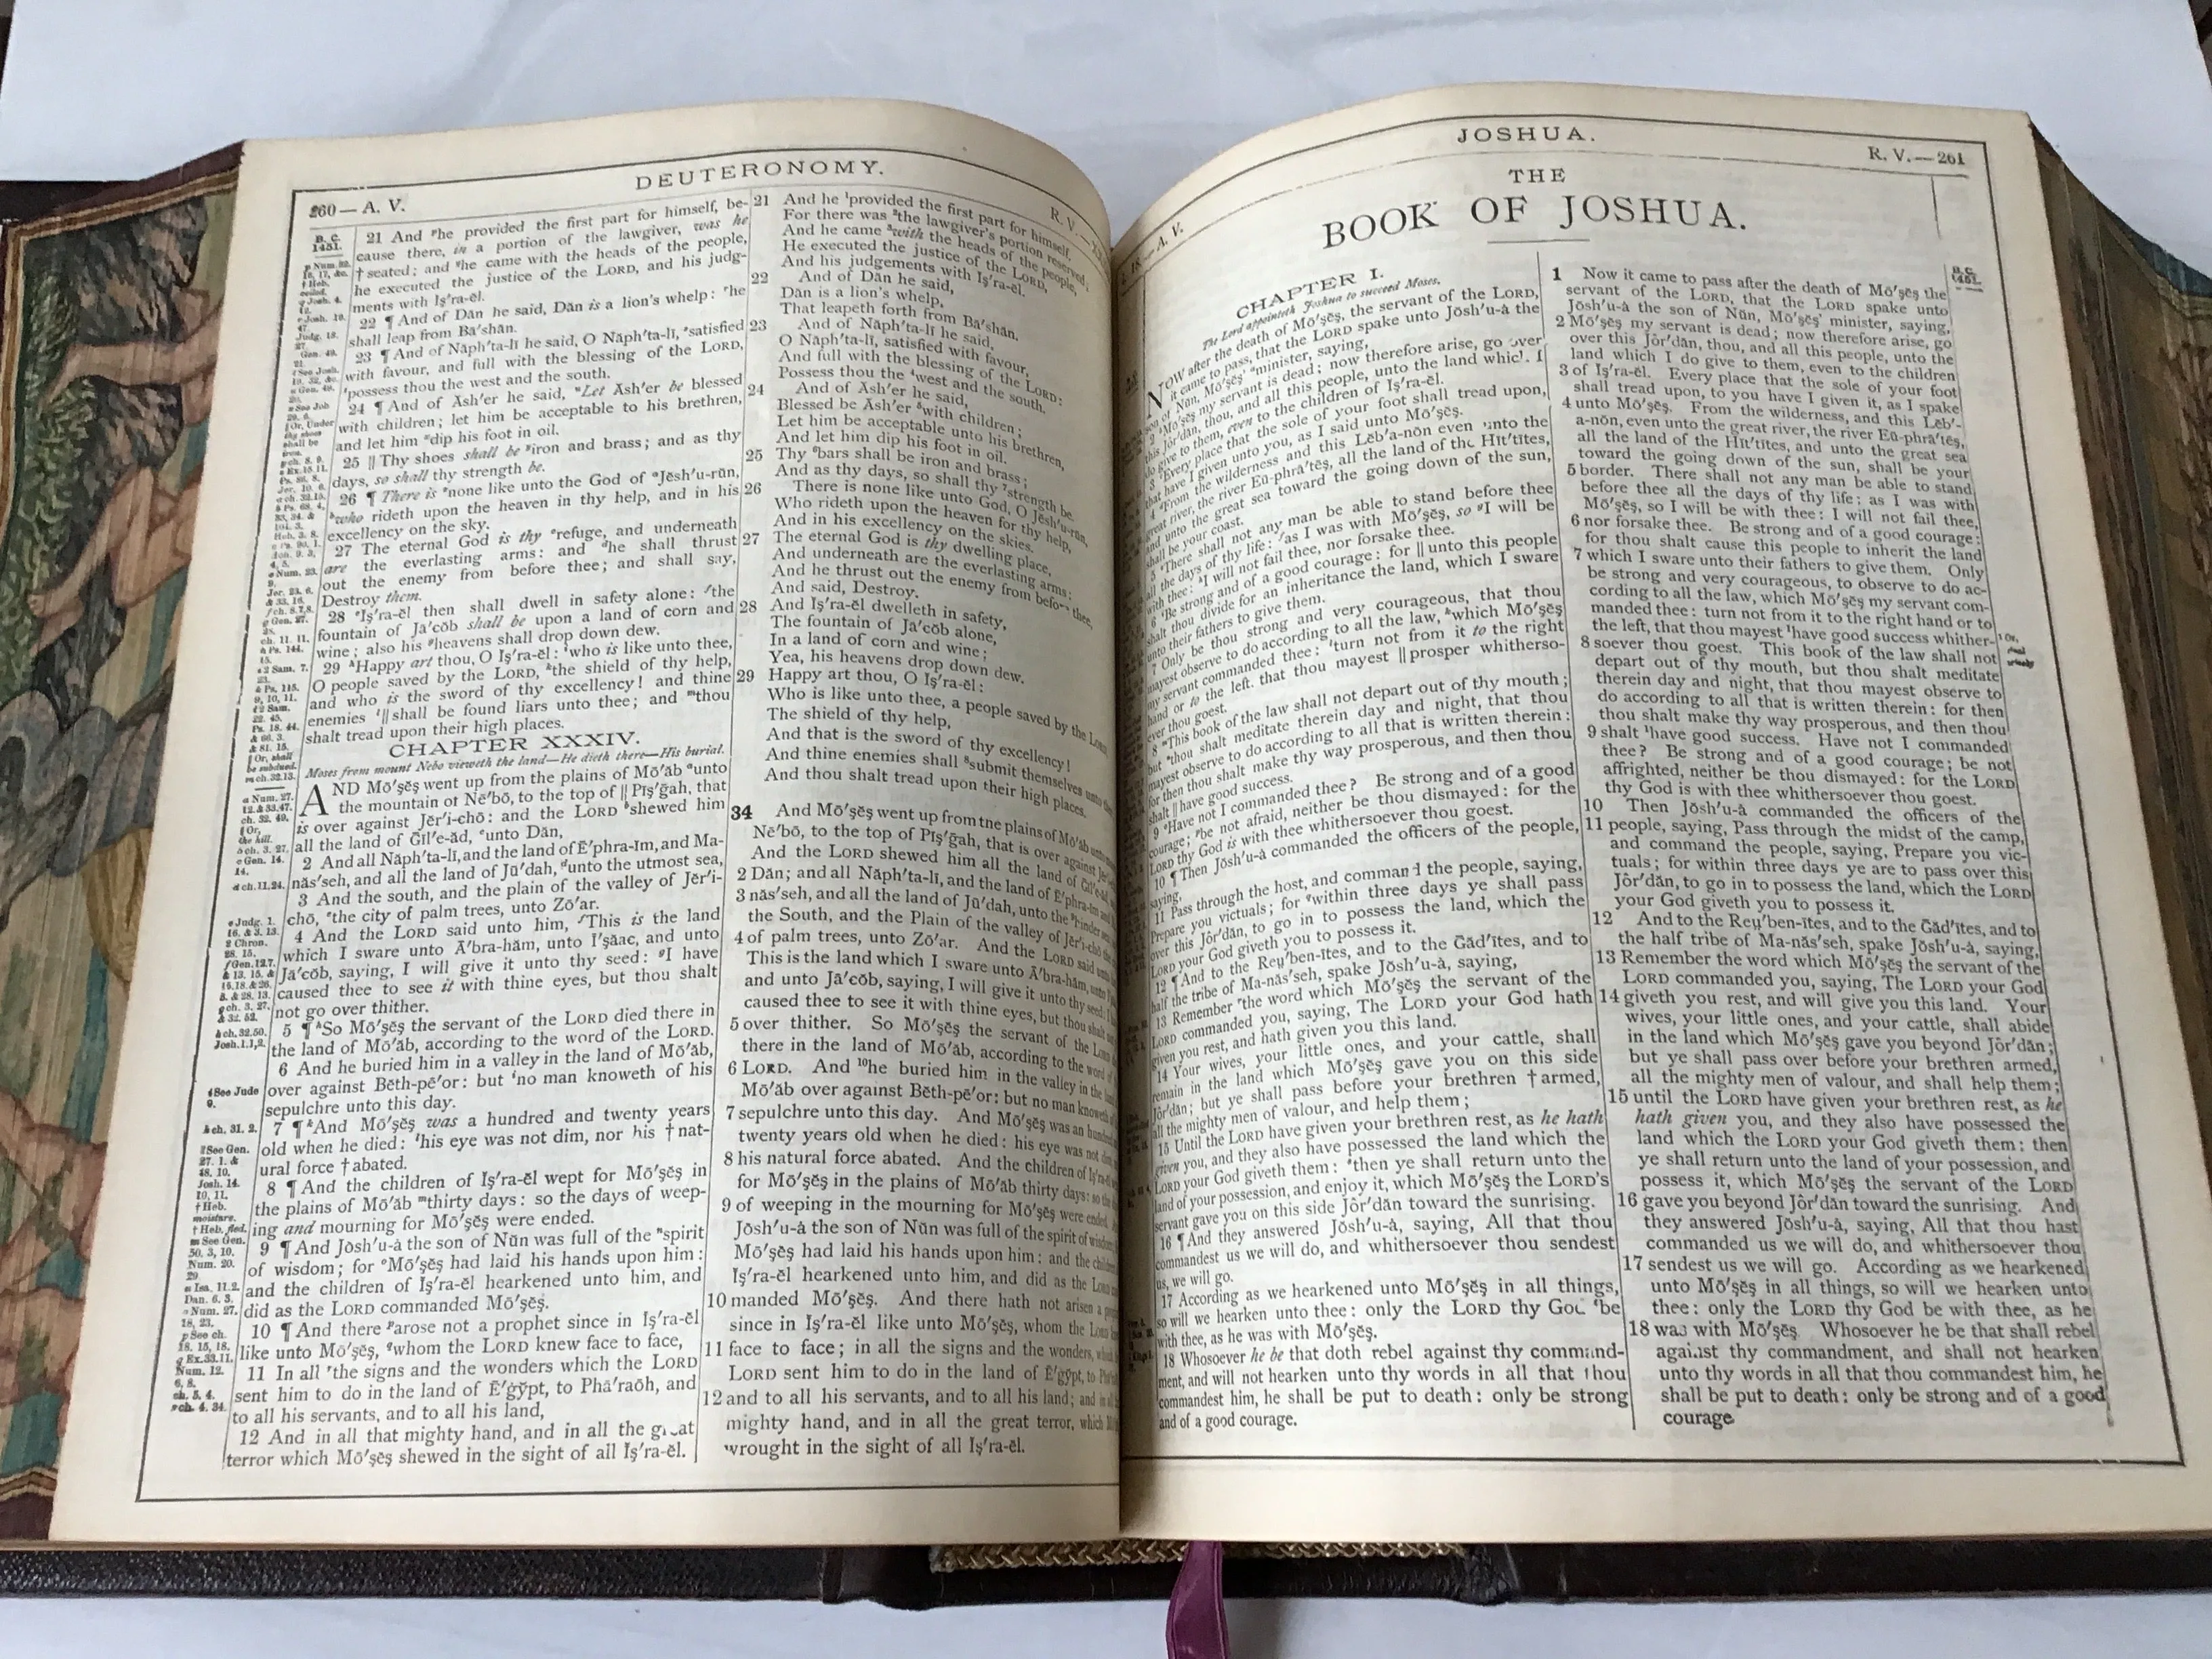 DEUTERONOMY.
260— A. V.
R. V.
B. C.
1451.
21 And he provided the first part for himself, be-
cause there, in a portion of the lawgiver, was he
† seated; and he came with the heads of the people,
he executed the justice of the LORD, and his judg-
ments with Iş'ra-ĕl.
22 ¶ And of Dăn he said, Dăn is a lion's whelp: he
shall leap from Bā'shăn.
23 ¶ And of Năph'ta-lī he said, O Năph'ta-lī, satisfied
with favour, and full with the blessing of the LORD,
possess thou the west and the south.
24 ¶ And of Ăsh'er he said, Let Ăsh'er be blessed
with children; let him be acceptable to his brethren,
and let him dip his foot in oil.
25 || Thy shoes shall be iron and brass; and as thy
days, so shall thy strength be.
26 ¶ There is none like unto the God of Jĕsh'u-rŭn,
who rideth upon the heaven in thy help, and in his
excellency on the sky.
27 The eternal God is thy refuge, and underneath
are the everlasting arms: and he shall thrust
out the enemy from before thee; and shall say,
Destroy them.
28 Iş'ra-ĕl then shall dwell in safety alone: the
fountain of Jā'cŏb shall be upon a land of corn and
wine; also his heavens shall drop down dew.
29 Happy art thou, O Iş'ra-ĕl: who is like unto thee,
O people saved by the LORD, the shield of thy help,
and who is the sword of thy excellency! and thine
enemies || shall be found liars unto thee; and thou
shalt tread upon their high places.
CHAPTER XXXIV.
Moses from mount Nebo vieweth the land—He dieth there—His burial.
AND Mō'şĕş went up from the plains of Mō'ăb unto
the mountain of Nē'bō, to the top of || Pĭş'ḡah, that
is over against Jĕr'i-chō: and the LORD shewed him
all the land of Ḡĭl'e-ăd, unto Dăn,
2 And all Năph'ta-lī, and the land of Ē'phra-ĭm, and Ma-
năs'seh, and all the land of Jū'dah, unto the utmost sea,
3 And the south, and the plain of the valley of Jĕr'i-
chō, the city of palm trees, unto Zō'ar.
4 And the LORD said unto him, This is the land
which I sware unto Ā'bra-hăm, unto I'şăac, and unto
Jā'cŏb, saying, I will give it unto thy seed: I have
caused thee to see it with thine eyes, but thou shalt
not go over thither.
5 ¶ So Mō'şĕş the servant of the LORD died there in
the land of Mō'ăb, according to the word of the LORD.
6 And he buried him in a valley in the land of Mō'ăb,
over against Bĕth-pē'or: but no man knoweth of his
sepulchre unto this day.
7 ¶ And Mō'şĕş was a hundred and twenty years
old when he died: his eye was not dim, nor his † nat-
ural force † abated.
8 ¶ And the children of Iş'ra-ĕl wept for Mō'şĕş in
the plains of Mō'ăb thirty days: so the days of weep-
ing and mourning for Mō'şĕş were ended.
9 ¶ And Jŏsh'u-à the son of Nŭn was full of the spirit
of wisdom; for Mō'şĕş had laid his hands upon him:
and the children of Iş'ra-ĕl hearkened unto him, and
did as the LORD commanded Mō'şĕş.
10 ¶ And there arose not a prophet since in Iş'ra-ĕl
like unto Mō'şĕş, whom the LORD knew face to face,
11 In all the signs and the wonders which the LORD
sent him to do in the land of Ē'ġy̆pt, to Phā'raōh, and
to all his servants, and to all his land,
12 And in all that mighty hand, and in all the great
terror which Mō'şĕş shewed in the sight of all Iş'ra-ĕl.
21 And he provided the first part for himself,
For there was the lawgiver's portion reserved;
And he came with the heads of the people,
He executed the justice of the LORD,
And his judgements with Iş'ra-ĕl.
22 And of Dăn he said,
Dăn is a lion's whelp,
That leapeth forth from Bā'shăn.
23 And of Năph'ta-lī he said,
O Năph'ta-lī, satisfied with favour,
And full with the blessing of the LORD:
Possess thou the west and the south.
24 And of Ăsh'er he said,
Blessed be Ăsh'er with children;
Let him be acceptable unto his brethren,
And let him dip his foot in oil.
25 Thy bars shall be iron and brass;
And as thy days, so shall thy strength be.
26 There is none like unto God, O Jĕsh'u-rŭn,
Who rideth upon the heaven for thy help,
And in his excellency on the skies.
27 The eternal God is thy dwelling place,
And underneath are the everlasting arms:
And he thrust out the enemy from before thee,
And said, Destroy.
28 And Iş'ra-ĕl dwelleth in safety,
The fountain of Jā'cŏb alone,
In a land of corn and wine;
Yea, his heavens drop down dew.
29 Happy art thou, O Iş'ra-ĕl:
Who is like unto thee, a people saved by the LORD,
The shield of thy help,
And that is the sword of thy excellency!
And thine enemies shall submit themselves unto
And thou shalt tread upon their high places.
34 And Mō'şĕş went up from the plains of Mō'ăb unto
Nē'bō, to the top of Pĭş'ḡah, that is over against
And the LORD shewed him all the land of
2 Dăn; and all Năph'ta-lī, and the land of Ē'phra-ĭm and
3 năs'seh, and all the land of Jū'dah, unto the hinder
the South, and the Plain of the valley of Jĕr'i-chō
4 of palm trees, unto Zō'ar. And the LORD said unto
This is the land which I sware unto Ā'bra-hăm, unto
and unto Jā'cŏb, saying, I will give it unto thy seed:
caused thee to see it with thine eyes, but thou shalt
5 over thither. So Mō'şĕş the servant of the LORD
there in the land of Mō'ăb, according to the word of
6 LORD. And he buried him in the valley in the land
Mō'ăb over against Bĕth-pē'or: but no man knoweth of
7 sepulchre unto this day. And Mō'şĕş was an hundred
twenty years old when he died: his eye was not dim,
8 his natural force abated. And the children of Iş'ra-ĕl
for Mō'şĕş in the plains of Mō'ăb thirty days: so the
9 of weeping in the mourning for Mō'şĕş were ended.
Jŏsh'u-à the son of Nŭn was full of the spirit of wisdom;
Mō'şĕş had laid his hands upon him: and the
Iş'ra-ĕl hearkened unto him, and did as the LORD
10 manded Mō'şĕş. And there hath not arisen a
since in Iş'ra-ĕl like unto Mō'şĕş, whom the LORD
11 face to face; in all the signs and the wonders, which
LORD sent him to do in the land of Ē'ġy̆pt, to
12 and to all his servants, and to all his land; and in all
mighty hand, and in all the great terror, which
wrought in the sight of all Iş'ra-ĕl.
JOSHUA.
A. V.
R. V.—261
THE
BOOK OF JOSHUA.
CHAPTER I.
The Lord appointeth Joshua to succeed Moses.
NOW after the death of Mō'şĕş, the servant of the LORD,
it came to pass, that the LORD spake unto Jŏsh'u-à the
son of Nŭn, Mō'şĕş' minister, saying,
2 Mō'şĕş my servant is dead; now therefore arise, go over
this Jôr'dăn, thou, and all this people, unto the land which I
do give to them, even to the children of Iş'ra-ĕl.
3 Every place that the sole of your foot shall tread upon,
that have I given unto you, as I said unto Mō'şĕş.
4 From the wilderness and this Lĕb'a-nŏn even unto the
great river, the river Eū-phrā'tēş, all the land of the Hĭt'tītes,
and unto the great sea toward the going down of the sun,
shall be your coast.
5 There shall not any man be able to stand before thee
all the days of thy life: as I was with Mō'şĕş, so I will be
with thee: I will not fail thee, nor forsake thee.
6 Be strong and of a good courage: for || unto this people
shalt thou divide for an inheritance the land, which I sware
unto their fathers to give them.
7 Only be thou strong and very courageous, that thou
mayest observe to do according to all the law, which Mō'şĕş
my servant commanded thee: turn not from it to the right
hand or to the left, that thou mayest || prosper whitherso-
ever thou goest.
8 This book of the law shall not depart out of thy mouth;
but thou shalt meditate therein day and night, that thou
mayest observe to do according to all that is written therein:
for then thou shalt make thy way prosperous, and then thou
shalt || have good success.
9 Have not I commanded thee? Be strong and of a good
courage; be not afraid, neither be thou dismayed: for the
LORD thy God is with thee whithersoever thou goest.
10 ¶ Then Jŏsh'u-à commanded the officers of the people,
saying,
11 Pass through the host, and command the people, saying,
Prepare you victuals; for within three days ye shall pass
over this Jôr'dăn, to go in to possess the land, which the
LORD your God giveth you to possess it.
12 ¶ And to the Reṳ'ben-ītes, and to the Găd'ītes, and to
half the tribe of Ma-năs'seh, spake Jŏsh'u-à, saying,
13 Remember the word which Mō'şĕş the servant of the
LORD commanded you, saying, The LORD your God hath
given you rest, and hath given you this land.
14 Your wives, your little ones, and your cattle, shall
remain in the land which Mō'şĕş gave you on this side
Jôr'dăn; but ye shall pass before your brethren † armed,
all the mighty men of valour, and help them;
15 Until the LORD have given your brethren rest, as he hath
given you, and they also have possessed the land which the
LORD your God giveth them: then ye shall return unto the
land of your possession, and enjoy it, which Mō'şĕş the LORD'S
servant gave you on this side Jôr'dăn toward the sunrising.
16 ¶ And they answered Jŏsh'u-à, saying, All that thou
commandest us we will do, and whithersoever thou sendest
us, we will go.
17 According as we hearkened unto Mō'şĕş in all things,
so will we hearken unto thee: only the LORD thy God be
with thee, as he was with Mō'şĕş.
18 Whosoever he be that doth rebel against thy command-
ment, and will not hearken unto thy words in all that thou
commandest him, he shall be put to death: only be strong
and of a good courage.
B. C.
1451.
1 Now it came to pass after the death of Mō'şĕş the
servant of the LORD, that the LORD spake unto
Jŏsh'u-à the son of Nŭn, Mō'şĕş' minister, saying,
2 Mō'şĕş my servant is dead; now therefore arise, go
over this Jôr'dăn, thou, and all this people, unto the
land which I do give to them, even to the children
3 of Iş'ra-ĕl. Every place that the sole of your foot
shall tread upon, to you have I given it, as I spake
4 unto Mō'şĕş. From the wilderness, and this Lĕb'-
a-nŏn, even unto the great river, the river Eū-phrā'tēş,
all the land of the Hĭt'tītes, and unto the great sea
toward the going down of the sun, shall be your
5 border. There shall not any man be able to stand
before thee all the days of thy life: as I was with
Mō'şĕş, so I will be with thee: I will not fail thee,
6 nor forsake thee. Be strong and of a good courage:
for thou shalt cause this people to inherit the land
7 which I sware unto their fathers to give them. Only
be strong and very courageous, to observe to do ac-
cording to all the law, which Mō'şĕş my servant com-
manded thee: turn not from it to the right hand or to
the left, that thou mayest have good success whither-
8 soever thou goest. This book of the law shall not
depart out of thy mouth, but thou shalt meditate
therein day and night, that thou mayest observe to
do according to all that is written therein: for then
thou shalt make thy way prosperous, and then thou
9 shalt have good success. Have not I commanded
thee? Be strong and of a good courage; be not
affrighted, neither be thou dismayed: for the LORD
thy God is with thee whithersoever thou goest.
10 Then Jŏsh'u-à commanded the officers of the
11 people, saying, Pass through the midst of the camp,
and command the people, saying, Prepare you vic-
tuals; for within three days ye are to pass over this
Jôr'dăn, to go in to possess the land, which the LORD
your God giveth you to possess it.
12 And to the Reṳ'ben-ītes, and to the Găd'ītes, and to
the half tribe of Ma-năs'seh, spake Jŏsh'u-à, saying,
13 Remember the word which Mō'şĕş the servant of the
LORD commanded you, saying, The LORD your God
14 giveth you rest, and will give you this land. Your
wives, your little ones, and your cattle, shall abide
in the land which Mō'şĕş gave you beyond Jôr'dăn;
but ye shall pass over before your brethren armed,
all the mighty men of valour, and shall help them;
15 until the LORD have given your brethren rest, as he
hath given you, and they also have possessed the
land which the LORD your God giveth them: then
ye shall return unto the land of your possession, and
possess it, which Mō'şĕş the servant of the LORD
16 gave you beyond Jôr'dăn toward the sunrising. And
they answered Jŏsh'u-à, saying, All that thou hast
commanded us we will do, and whithersoever thou
17 sendest us we will go. According as we hearkened
unto Mō'şĕş in all things, so will we hearken unto
thee: only the LORD thy God be with thee, as he
18 was with Mō'şĕş. Whosoever he be that shall rebel
against thy commandment, and shall not hearken
unto thy words in all that thou commandest him, he
shall be put to death: only be strong and of a good
courage